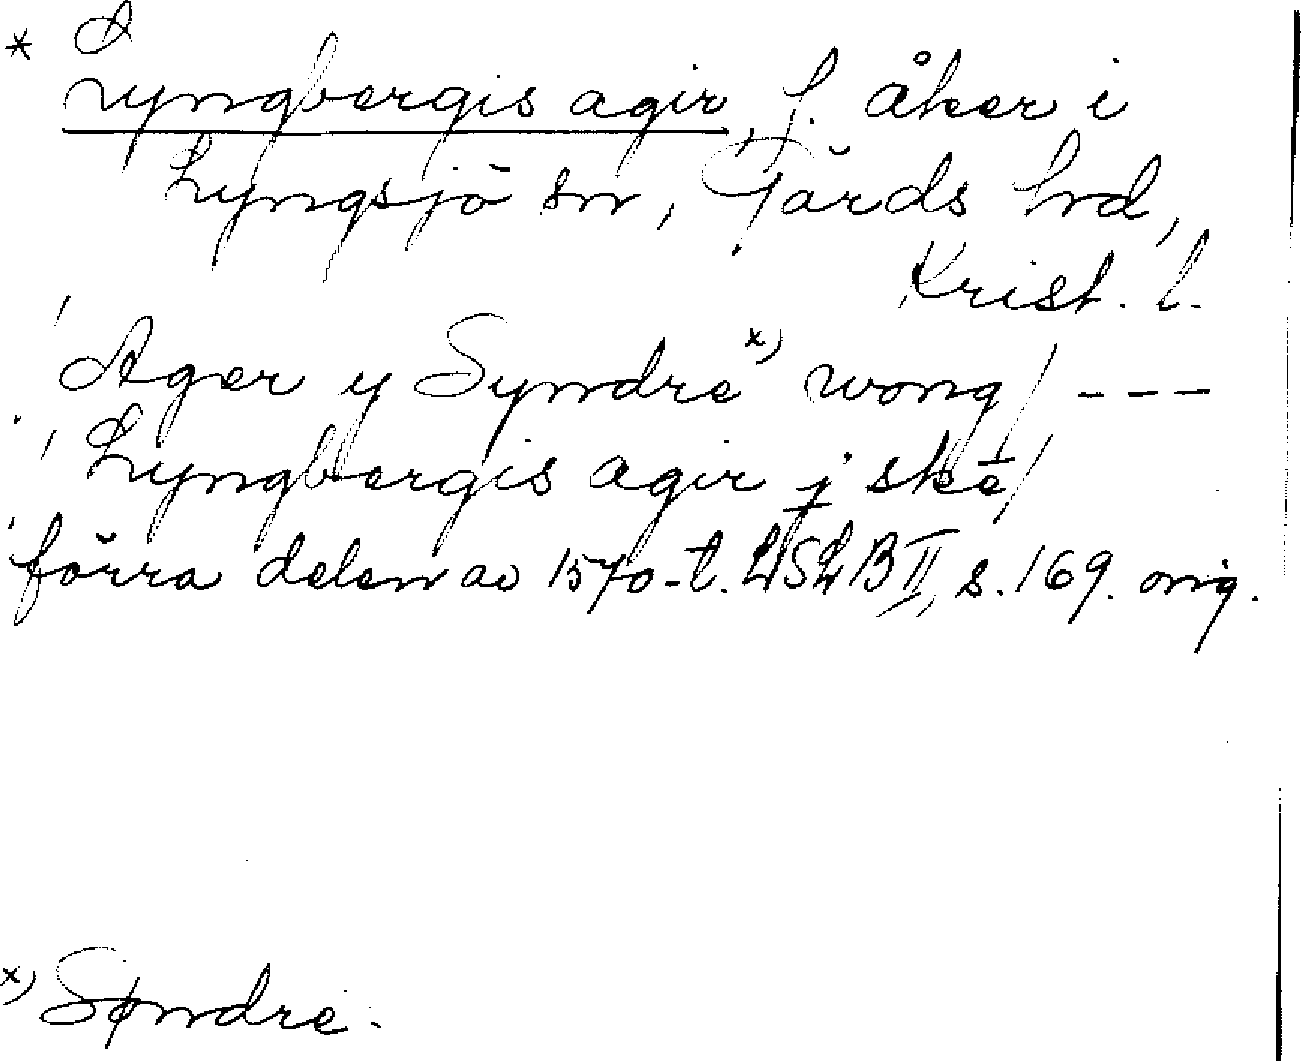 * Lyngbergis agir, f. åker i
Lyngsjö sn, Gärds hrd,
Krist. l.
Ager y Syndre x) wong / ---
Lyngbergis agir j skē /
förra delen av 1570-t. LSLB II, s. 169. orig.
x) Søndre.